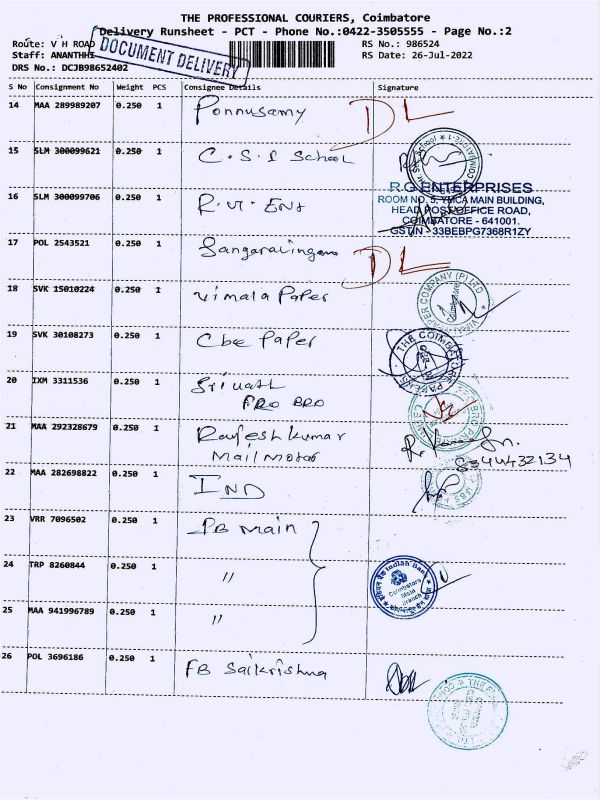 THE PROFESSIONAL COURIERS, Coimbatore
Delivery Runsheet - PCT - Phone No.:0422-3505555 - Page No.:2
Route: V H ROAD
RS No.: 986524
Staff: ANANTHHI
RS Date: 26-Jul-2022
DRS No.: DCJB98652402
DOCUMENT DELIVERY
S No Consignment No Weight PCS Consignee Details Signature
14 MAA 289989207 0.250 1 Ponnusamy DL
15 SLM 300099621 0.250 1 C.S.I School
16 SLM 300099706 0.250 1
R.G ENTERPRISES
ROOM NO. 5, YMCA MAIN BUILDING,
HEAD POST OFFICE ROAD,
COIMBATORE - 641001.
GSTIN - 33BEBPG7368R1ZY
17 POL 2543521 0.250 1 Sangaralingam DL
18 SVK 15010224 0.250 1 Vimala Paper
19 SVK 30108273 0.250 1 Cbe Paper
20 IXM 3311536 0.250 1 Srivath
PRO BRO
21 MAA 292328679 0.250 1 Rajeshkumar
Mail Motor
22 MAA 282698822 0.250 1 IND
23 VRR 7096502 0.250 1 IB Main
24 TRP 8260844 0.250 1 "
Indian Bank
Coimbatore
Main
Branch
25 MAA 941996789 0.250 1 "
26 POL 3696186 0.250 1 FB Saikrishna